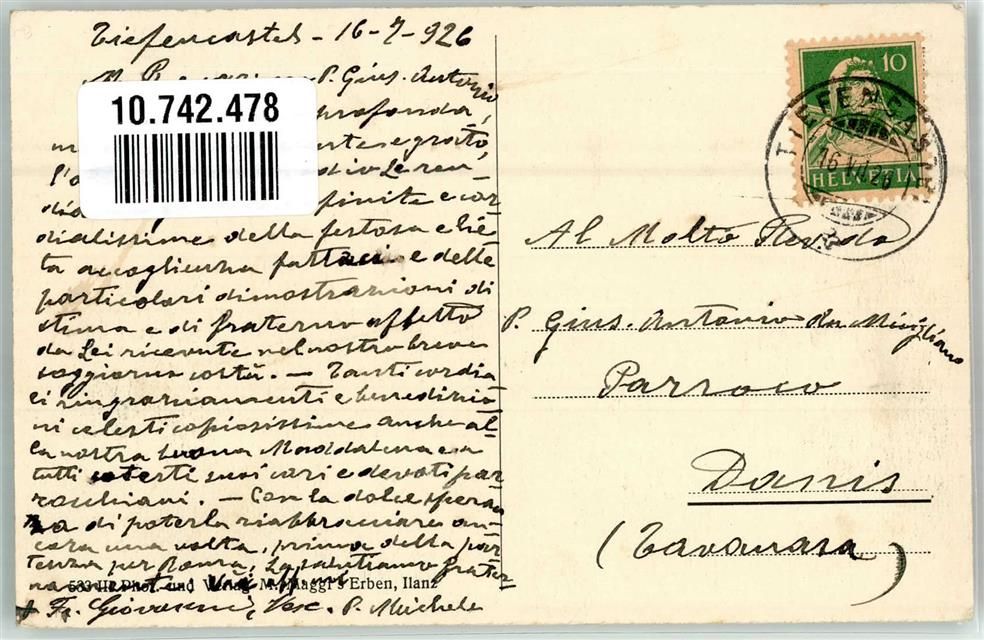 Tiefencastel - 16-7-926
P. Gius. Antonio
profonda,
10.742.478
e grato,
finite e cor-
dialissime della festosa e lie-
ta accoglienza fattaci e delle
particolari dimostrazioni di
stima e di fraterno affetto
da Lei ricevute nel nostro breve
soggiorno costà. - Tanti cordia-
li ringraziamenti e benedizio-
ni celesti copiosissime anche al-
la nostra buona Maddalena e a
tutti cotesti suoi cari e devoti par-
rocchiani. - Con la dolce speran-
za di poterla riabbracciare an-
cora una volta, prima della par-
tenza per Roma, La salutiamo frater-
533 III Phot. und Verlag M. Maggi's Erben, Ilanz
+ Fr. Giovanni, Vesc. P. Michele
10
HELVETIA
TIEFENCASTEL
16.VII.26
Al Molto Revdo
P. Gius. Antonio da Mivigliano
Parroco
Danis
(Tavanasa)